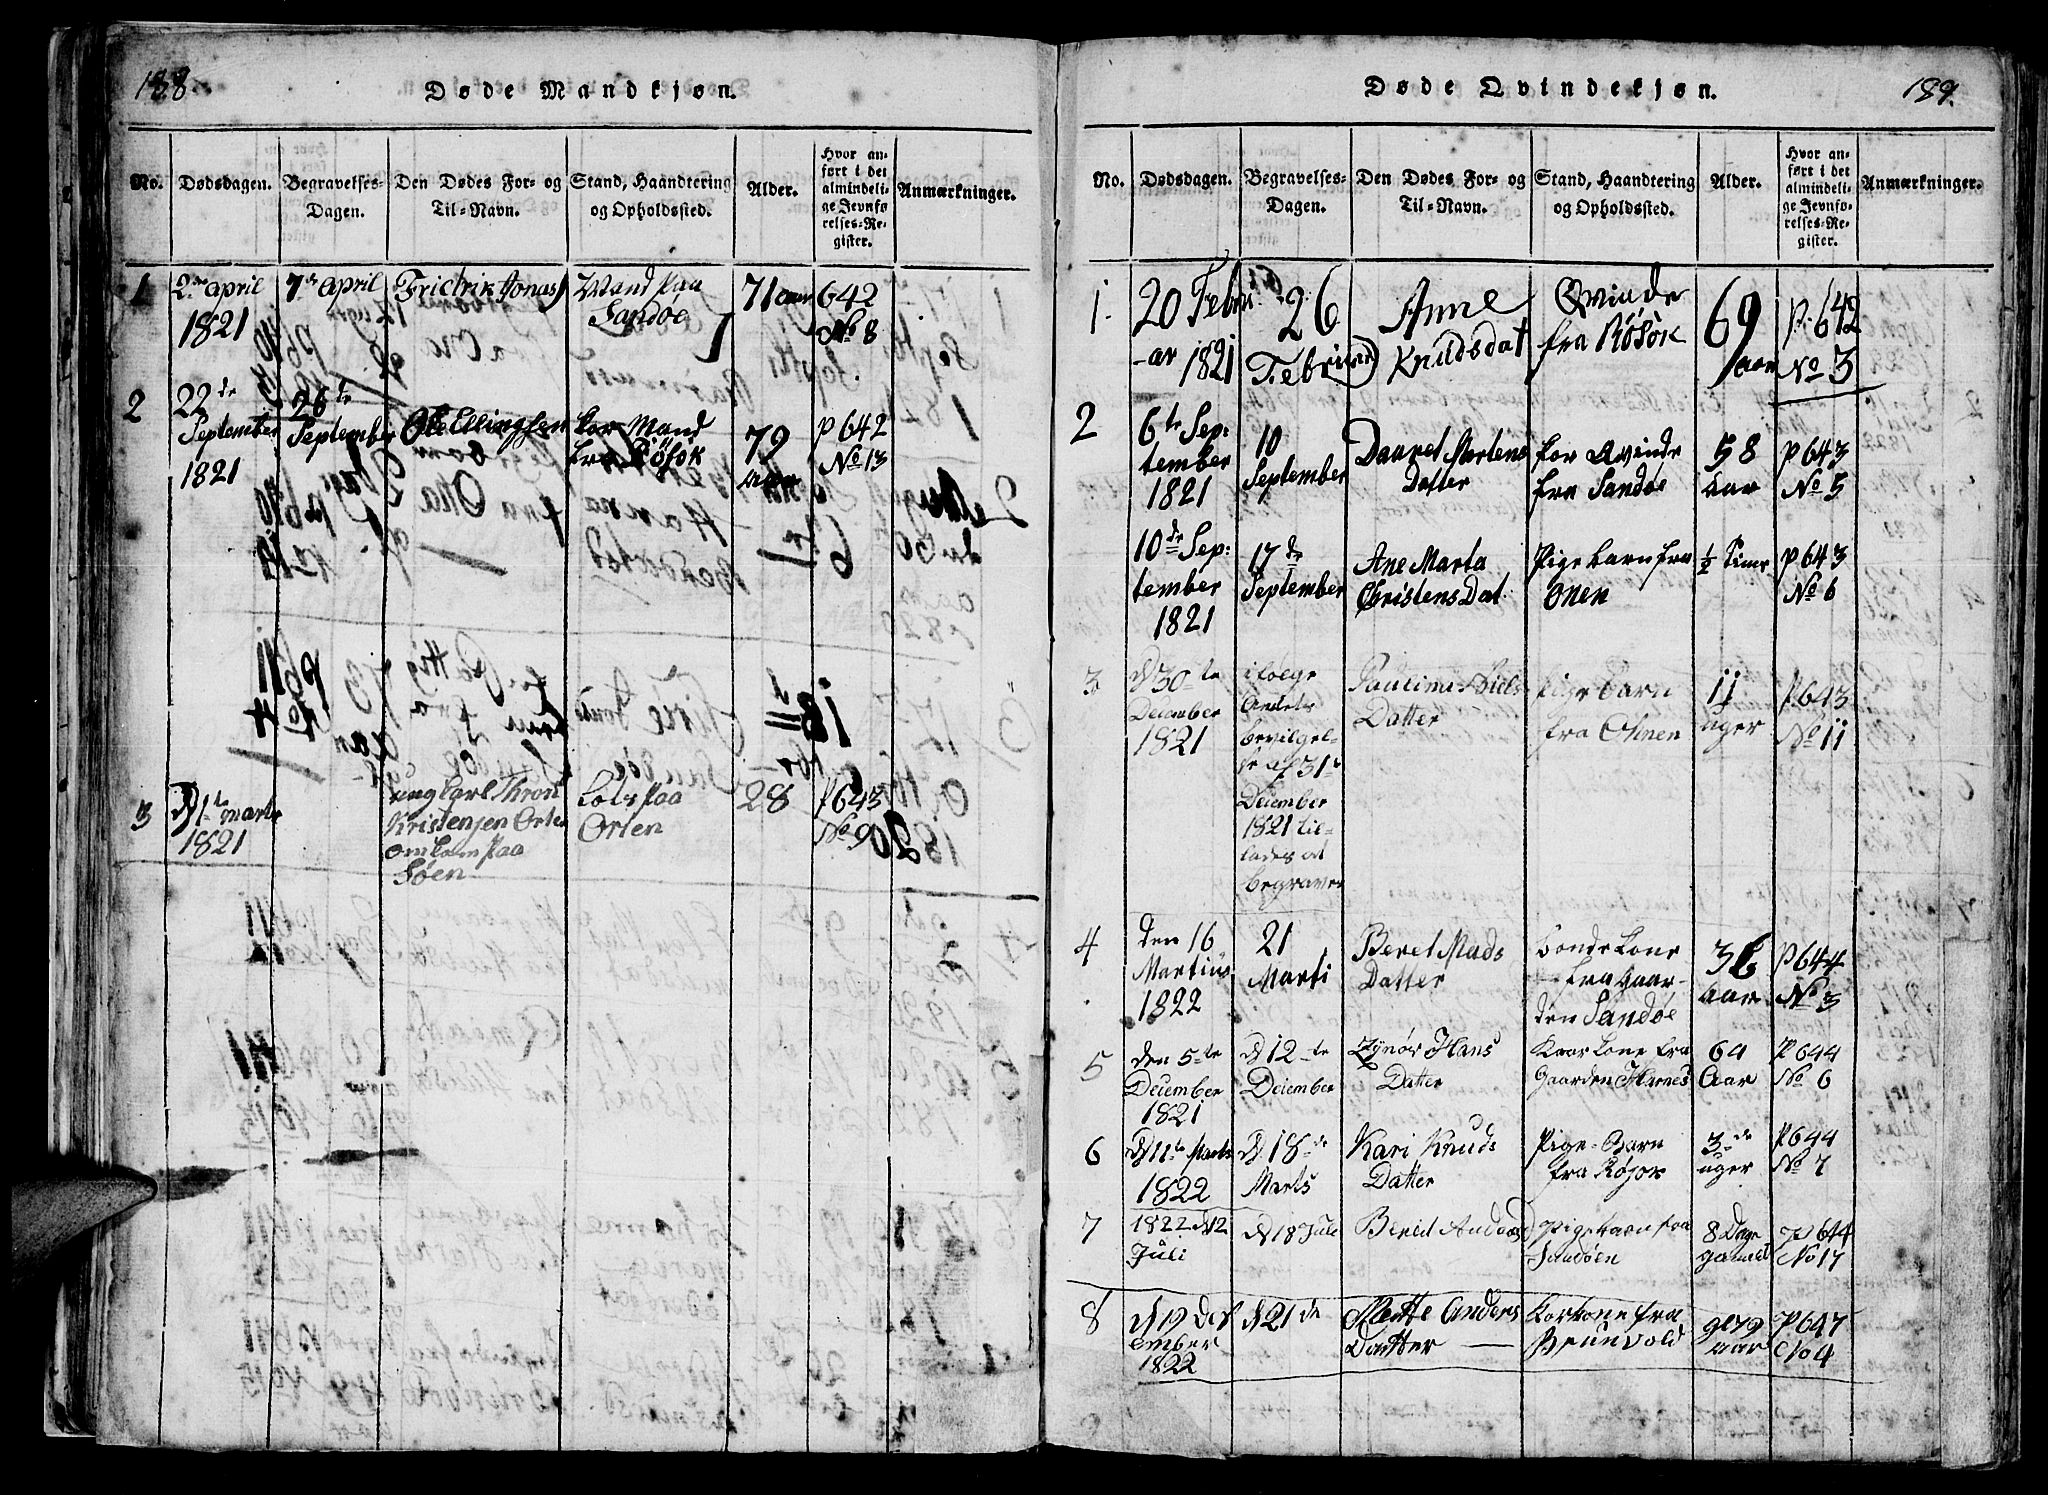 188
Døde Mandkjøn.
No.
Dødsdagen.
Begravelses-
Dagen.
Den Dødes For- og
Til-Navn.
Stand, Haandtering
og Opholdssted.
Alder.
Hvor an-
ført i det
almindeli-
ge Jevnfø-
relses-Re-
gister.
Anmærkninger.
1
2 april
1821
7 april
Fridrik Jonas
Mand paa
Sandøe
71 aar
642
No 8
2
22de
September
1821
26te
September
Ole Ellingsen
Kor Mand
fra Røsok
79
aar
p 642
No 13
3
D 1te marts
1821
ung Carl Thron
Kristensen Orten
omkom paa
Søen
Lots paa
Orten
28
P 643
No 9
189.
Døde Qvindekjøn.
No.
Dødsdagen.
Begravelses-
Dagen.
Den Dødes For- og
Til-Navn.
Stand, Haandtering
og Opholdssted.
Alder.
Hvor an-
ført i det
almindeli-
ge Jevnfø-
relses-Re-
gister.
Anmærkninger.
1.
20 Febru
-ar 1821
26
Anne
Knudsdat
Qvinde
fra Røsok
69
aar
P. 642
No 3
2
6te Sep:
tember
1821
10
September
Daaret Mortens
Datter
for Qvinde
fra Sandøe
58
aar
P 643
No 5
10de Sep:
tember
1821
17de
September
Ane Marta
Christens Dat.
Pige barn fra
Onen
½ Time
P 643
No 6
3
D 30te
December
1821
i følge
Andets
bevilgel-
se af 31te
December
1821 til-
lades at
begraves
Paulina Niels
Datter
Pige barn
fra Ohnen
11
uger
P. 643
No 11
4
den 16
Martius
1822
21
Marti
Beret Mads
Datter
Bonde Kone
fra Gaar-
den Sandøe
36
aar
P 644
No 3
5
den 5te
December
1821
D 12te
December
Synøv Hans
Datter
Kaar Kone fra
Gaarden Harnes
64
Aar
P 644
No 6
6
D 11te Marts
1822
D. 18de
Marts
Kari Knuds
Datter
Pige-Barn
fra Røsok
3de
uger
P 644
No 7
7
1822 d 12
Juli
D 18 Juli
Bereth Anders
Pigebarn fra
Sandøen
8 Dage
gammel
P 644
No 17
8
D 19 Des
ember
1822
D 21de
Marte Anders
Datter
Korkone fra
79
aar
P 647
No 4